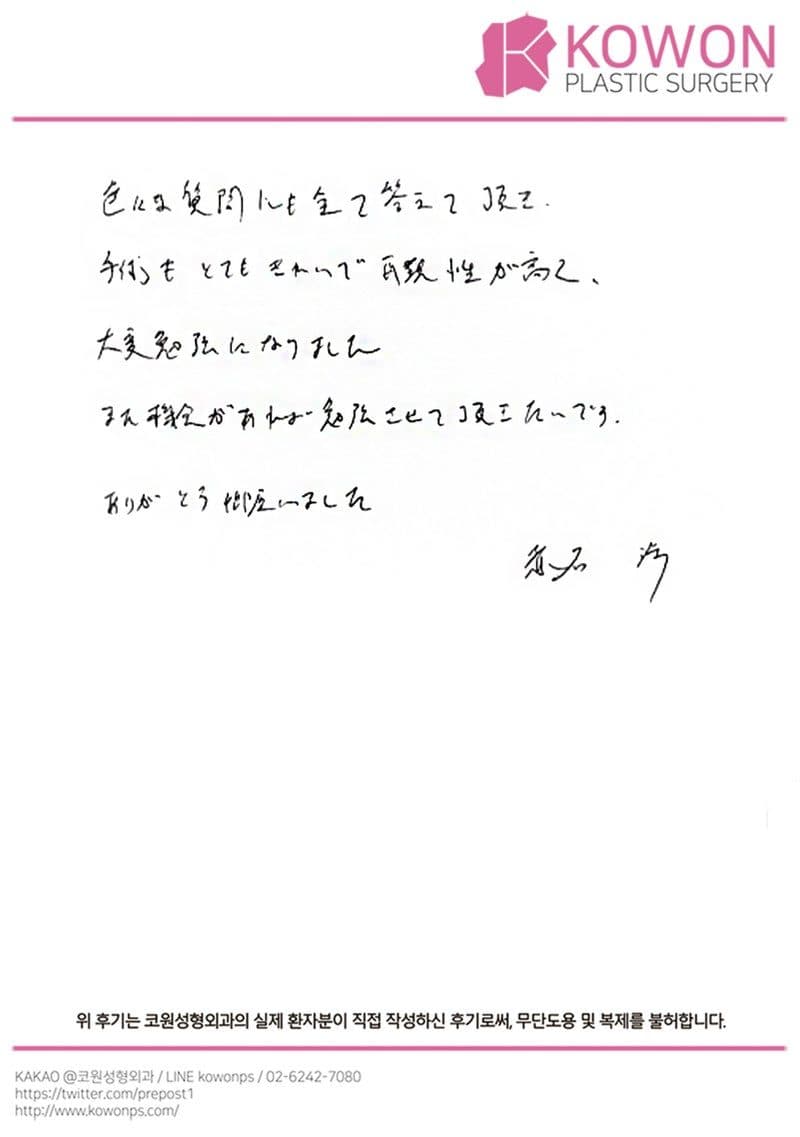 KOWON
PLASTIC SURGERY
色んな質問にも全て答えて頂き.
手術もとてもきれいで再現性が高く、
大変勉強になりました
また機会があれば勉強させて頂きたいです.
ありがとう御座いました
위 후기는 코원성형외과의 실제 환자분이 직접 작성하신 후기로써, 무단도용 및 복제를 불허합니다.
KAKAO @코원성형외과 / LINE kowonps / 02-6242-7080
https://twitter.com/prepost1
http://www.kowonps.com/